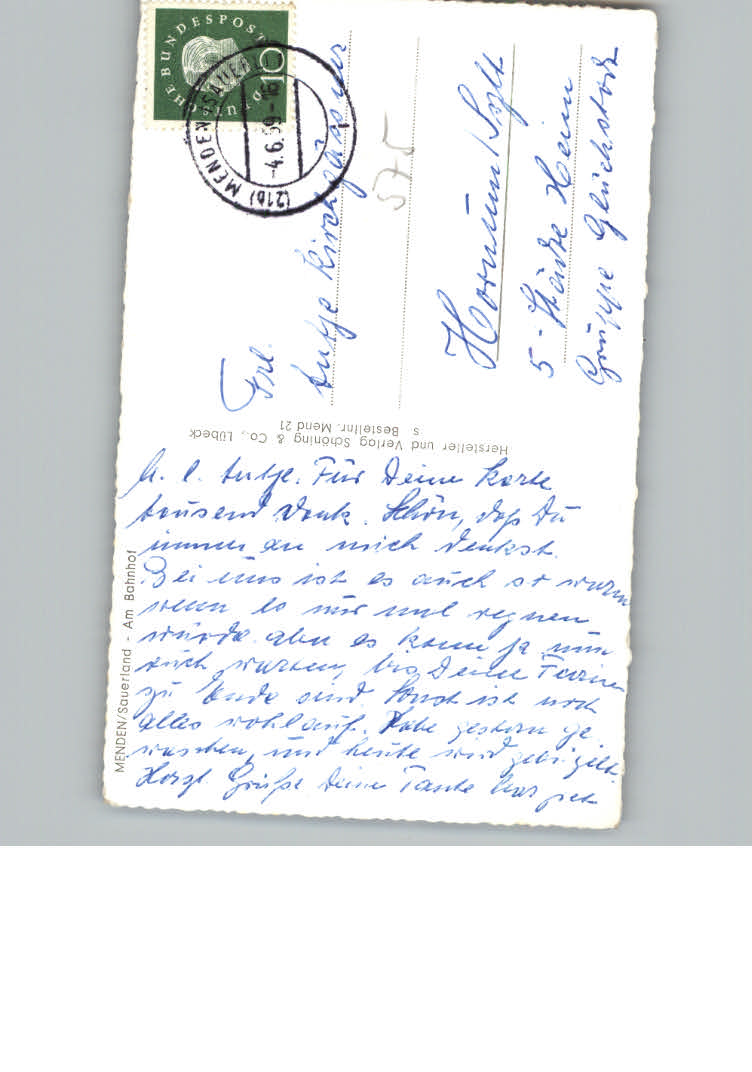 DEUTSCHE BUNDESPOST
10
(21b) MENDEN (SAUERL)
-4.6.59-16
Frl.
Antje Kirchgässner
575
Hornum/Sylt
5-Städte Heim
Gruppe Glückstadt
Hersteller und Verlag Schöning & Co., Lübeck
s Bestellnr. Mend 21
MENDEN/Sauerland - Am Bahnhof
M. l. Antje. Für Deine Karte
tausend Dank. Schön, daß Du
immer an mich denkst.
Bei uns ist es auch so warm
wenn es nur mal regnen
würde. aber es kann ja nun
auch warten, bis Deine Ferien
zu Ende sind. Sonst ist noch
alles wohlauf. Habe gestern ge-
waschen, und heute wird gebügelt.
Herzl. Grüße Deine Tante